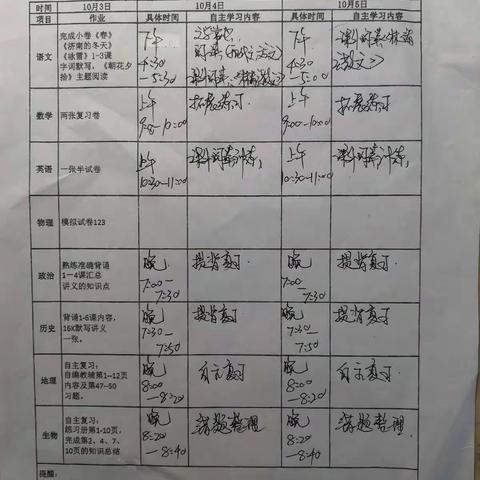 时间 10月3日 10月4日 10月5日
项目 作业 具体时间 自主学习内容 具体时间 自主学习内容
语文
完成小卷《春》
《济南的冬天》
《咏雪》1-3课
字词默写，《朝花夕
拾》主题阅读
下午
4:30
—5:30
下午
4:30
—5:00
数学
两张复习卷
上午
拓展练习.
上午
9:00-10:00
拓展练习.
英语
一张半试卷
上午
10:30-11:00
上午
10:30-11:00
物理
模拟试卷123
政治
熟练准确背诵
1—4课汇总
讲义的知识点
晚
7:00—
7:30
提背复习.
晚
7:00
—7:30
提背复习.
历史
背诵1-6课内容，
16K默写讲义
一张。
晚
7:30—
7:50
提背复习
晚
7:30—
7:50
提背复习
地理
自主复习：
自编教辅第1--12页
内容及第47--50
习题。
晚
8:00
—8:20
自主复习
晚
8:00
—8:20
自主复习.
生物
自主复习：
练习册第1-10页，
完成第2、4、7、
10页的知识总结
晚
8:20
—8:40
错题整理
晚
8:20
—8:40
错题整理.
提醒：